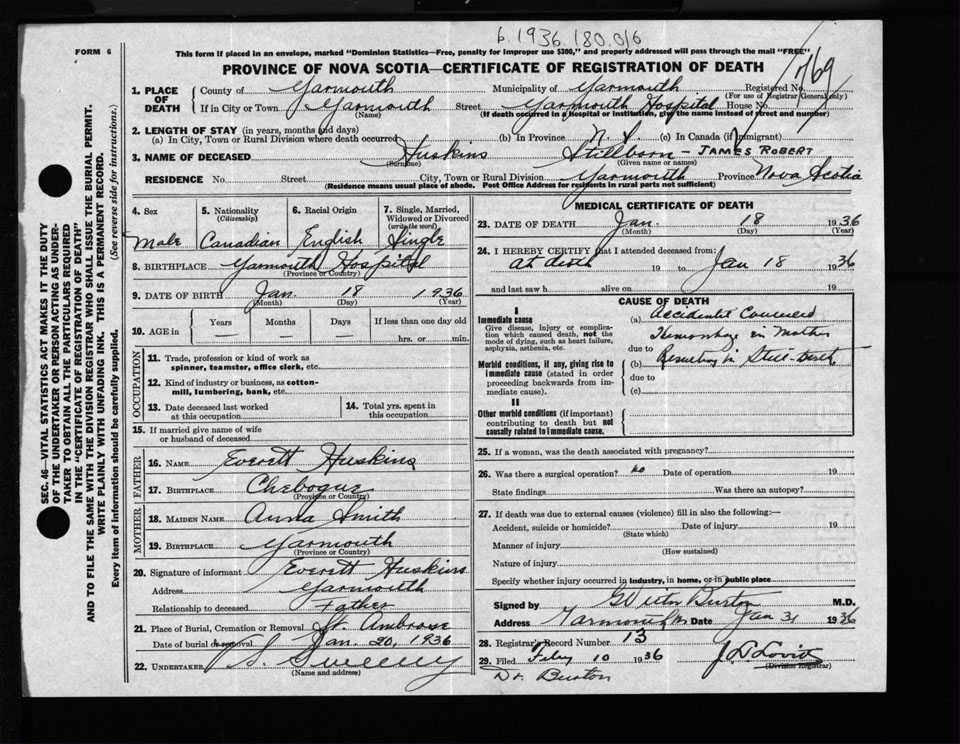 6.1936.180.016
FORM 6
This form if placed in an envelope, marked "Dominion Statistics—Free, penalty for improper use $300," and properly addressed will pass through the mail "FREE"
PROVINCE OF NOVA SCOTIA—CERTIFICATE OF REGISTRATION OF DEATH
769
1. PLACE OF DEATH
County of Yarmouth Municipality of Yarmouth Registered No.
(For use of Registrar General only)
If in City or Town Yarmouth Street Yarmouth Hospital House No.
(Name) (If death occurred in a hospital or institution, give the name instead of street and number)
2. LENGTH OF STAY (in years, months and days)
(a) In City, Town or Rural Division where death occurred (b) In Province N. S (c) In Canada (if immigrant)
3. NAME OF DECEASED Huskins Stillborn – JAMES ROBERT
(Surname) (Given name or names)
RESIDENCE No. Street City, Town or Rural Division Yarmouth Province Nova Scotia
(Residence means usual place of abode. Post Office Address for residents in rural parts not sufficient)
4. Sex 5. Nationality (Citizenship) 6. Racial Origin 7. Single, Married, Widowed or Divorced (write the word)
Male Canadian English Single
8. BIRTHPLACE Yarmouth Hospital
(Province or Country)
9. DATE OF BIRTH Jan. 18 1936
(Month) (Day) (Year)
10. AGE in Years Months Days If less than one day old
hrs. or min.
OCCUPATION
11. Trade, profession or kind of work as spinner, teamster, office clerk, etc.
12. Kind of industry or business, as cotton-mill, lumbering, bank, etc.
13. Date deceased last worked at this occupation
14. Total yrs. spent in this occupation
15. If married give name of wife or husband of deceased
FATHER
16. NAME Everett Huskins
17. BIRTHPLACE Chebogue
(Province or Country)
MOTHER
18. MAIDEN NAME Anna Smith
19. BIRTHPLACE Yarmouth
(Province or Country)
20. Signature of informant Everett Huskins
Address Yarmouth
Relationship to deceased Father
21. Place of Burial, Cremation or Removal St. Ambrose
Date of burial or removal Jan. 20, 1936
22. UNDERTAKER S. Sweeney
(Name and address)
MEDICAL CERTIFICATE OF DEATH
23. DATE OF DEATH Jan. 18 1936
(Month) (Day) (Year)
24. I HEREBY CERTIFY that I attended deceased from:
at death 19 to Jan 18 1936
and last saw h alive on 19
CAUSE OF DEATH
I
Immediate cause
Give disease, injury or complication which caused death, not the mode of dying, such as heart failure, asphyxia, asthenia, etc.
(a) Accidental Concealed
Hemorrhage in Mother
due to
Morbid conditions, if any, giving rise to immediate cause (stated in order proceeding backwards from immediate cause).
(b) Resulting in Still-birth
due to
(c)
II
Other morbid conditions (if important) contributing to death but not causally related to immediate cause.
25. If a woman, was the death associated with pregnancy?
26. Was there a surgical operation? no Date of operation 19
State findings Was there an autopsy?
27. If death was due to external causes (violence) fill in also the following:—
Accident, suicide or homicide? Date of injury 19
(State which)
Manner of injury
(How sustained)
Nature of injury
Specify whether injury occurred in industry, in home, or in public place
Signed by G Victor Burton M.D.
Address Yarmouth NS Date Jan 31 1936
28. Registrar's Record Number 13
29. Filed Feby 10 1936 J. D. Lovitt
(Division Registrar)
Dr. Burton
SEC. 46—VITAL STATISTICS ACT MAKES IT THE DUTY
OF THE UNDERTAKER OR PERSON ACTING AS UNDER-
TAKER TO OBTAIN ALL THE PARTICULARS REQUIRED
IN THE "CERTIFICATE OF REGISTRATION OF DEATH"
AND TO FILE THE SAME WITH THE DIVISION REGISTRAR WHO SHALL ISSUE THE BURIAL PERMIT.
WRITE PLAINLY WITH UNFADING INK. THIS IS A PERMANENT RECORD.
Every item of information should be carefully supplied. (See reverse side for instructions.)